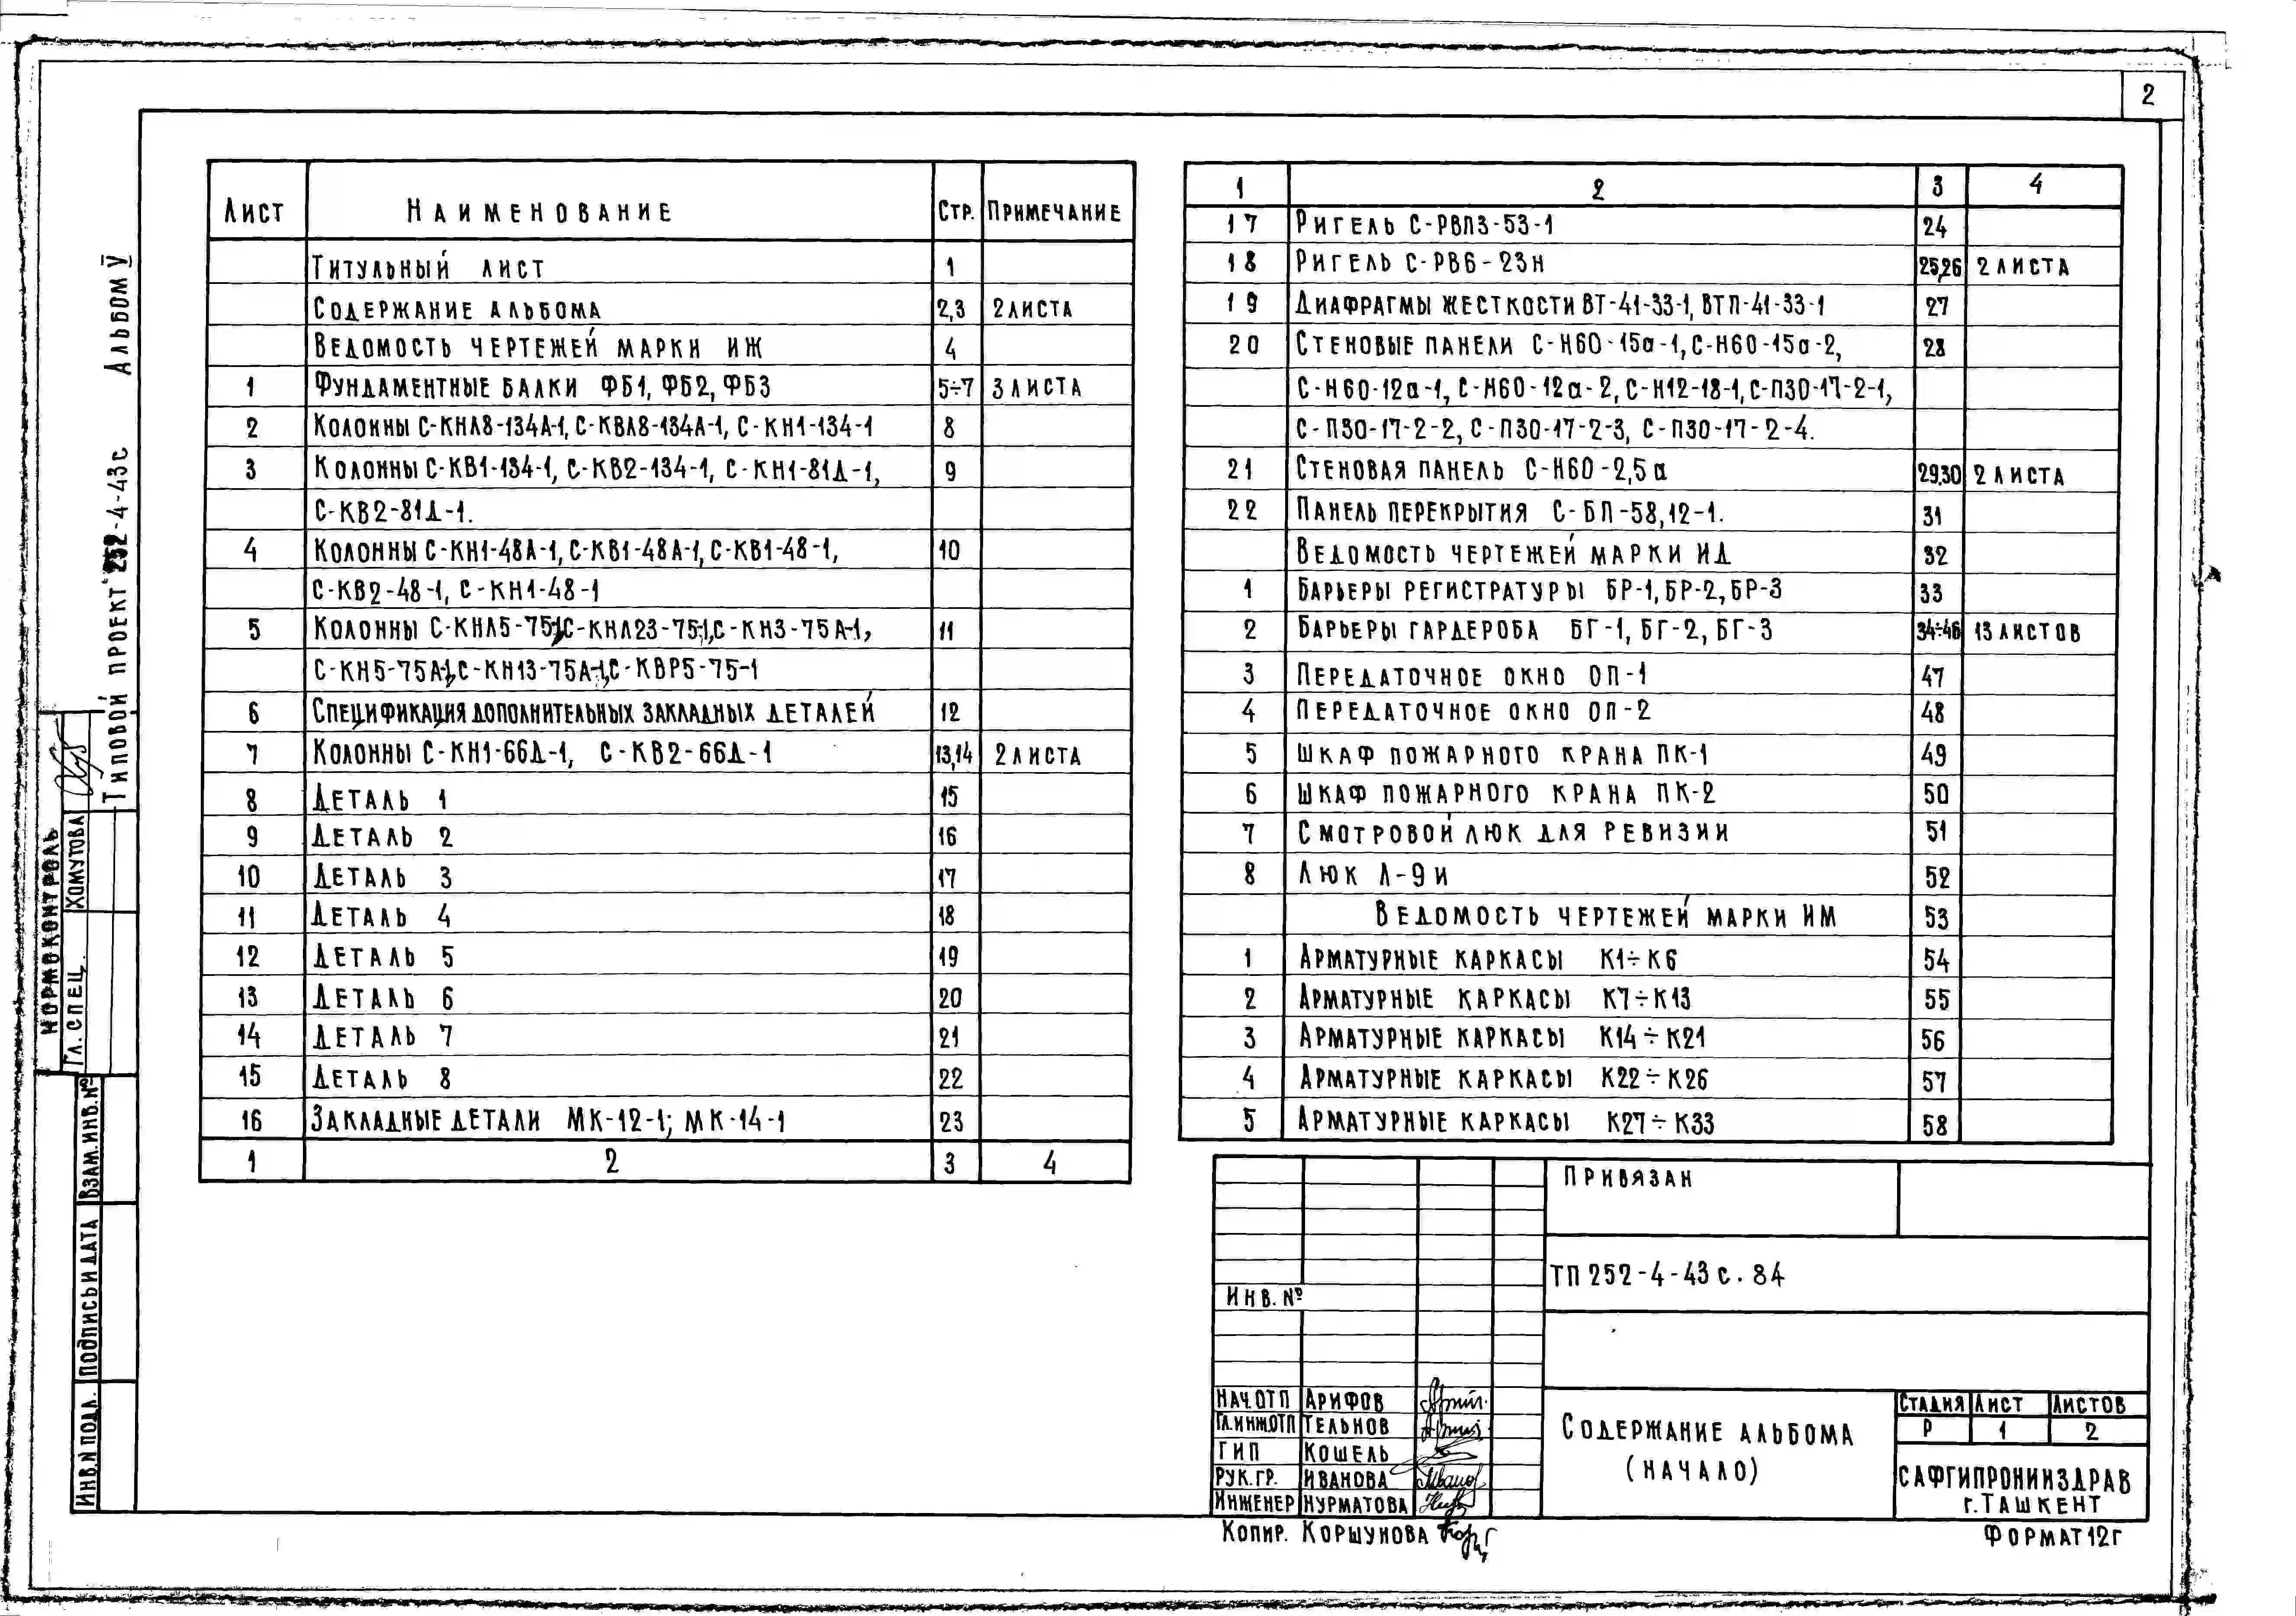 2
Типовой проект 252-4-43с Альбом V
Нормоконтроль
Гл. спец. Хомутова
Взам. инв. №
Подпись и дата
Инв. № подл.
Лист Наименование Стр. Примечание
Титульный лист 1
Содержание альбома 2,3 2 листа
Ведомость чертежей марки ИЖ 4
1 Фундаментные балки ФБ1, ФБ2, ФБ3 5÷7 3 листа
2 Колонны С-КНЛ8-134А-1, С-КВЛ8-134А-1, С-КН1-134-1 8
3 Колонны С-КВ1-134-1, С-КВ2-134-1, С-КН1-81Д-1, 9
С-КВ2-81Д-1.
4 Колонны С-КН1-48А-1, С-КВ1-48А-1, С-КВ1-48-1, 10
С-КВ2-48-1, С-КН1-48-1
5 Колонны С-КНЛ5-75-1, С-КНЛ23-75-1, С-КН3-75А-1, 11
С-КН5-75А-1, С-КН13-75А-1, С-КВР5-75-1
6 Спецификация дополнительных закладных деталей 12
7 Колонны С-КН1-66Д-1, С-КВ2-66Д-1 13,14 2 листа
8 Деталь 1 15
9 Деталь 2 16
10 Деталь 3 17
11 Деталь 4 18
12 Деталь 5 19
13 Деталь 6 20
14 Деталь 7 21
15 Деталь 8 22
16 Закладные детали МК-12-1; МК-14-1 23
1 2 3 4
1 2 3 4
17 Ригель С-РВП3-53-1 24
18 Ригель С-РВ6-23н 25,26 2 листа
19 Диафрагмы жесткости ВТ-41-33-1, ВТП-41-33-1 27
20 Стеновые панели С-Н60-15а-1, С-Н60-15а-2, 28
С-Н60-12а-1, С-Н60-12а-2, С-Н12-18-1, С-П30-17-2-1,
С-П30-17-2-2, С-П30-17-2-3, С-П30-17-2-4.
21 Стеновая панель С-Н60-2,5а 29,30 2 листа
22 Панель перекрытия С-БП-58,12-1. 31
Ведомость чертежей марки ИД 32
1 Барьеры регистратуры БР-1, БР-2, БР-3 33
2 Барьеры гардероба БГ-1, БГ-2, БГ-3 34÷46 13 листов
3 Передаточное окно ОП-1 47
4 Передаточное окно ОП-2 48
5 Шкаф пожарного крана ПК-1 49
6 Шкаф пожарного крана ПК-2 50
7 Смотровой люк для ревизии 51
8 Люк Л-9и 52
Ведомость чертежей марки ИМ 53
1 Арматурные каркасы К1÷К6 54
2 Арматурные каркасы К7÷К13 55
3 Арматурные каркасы К14÷К21 56
4 Арматурные каркасы К22÷К26 57
5 Арматурные каркасы К27÷К33 58
Привязан
Инв. №
ТП 252-4-43с.84
Нач.ОТП Арифов
Гл.инж.ОТП Тельнов
ГИП Кошель
Рук.гр. Иванова
Инженер Нурматова
Содержание альбома
(начало)
Стадия Лист Листов
Р 1 2
САФГИПРОНИИЗДРАВ
г. Ташкент
Копир. Коршунова
Формат 12г